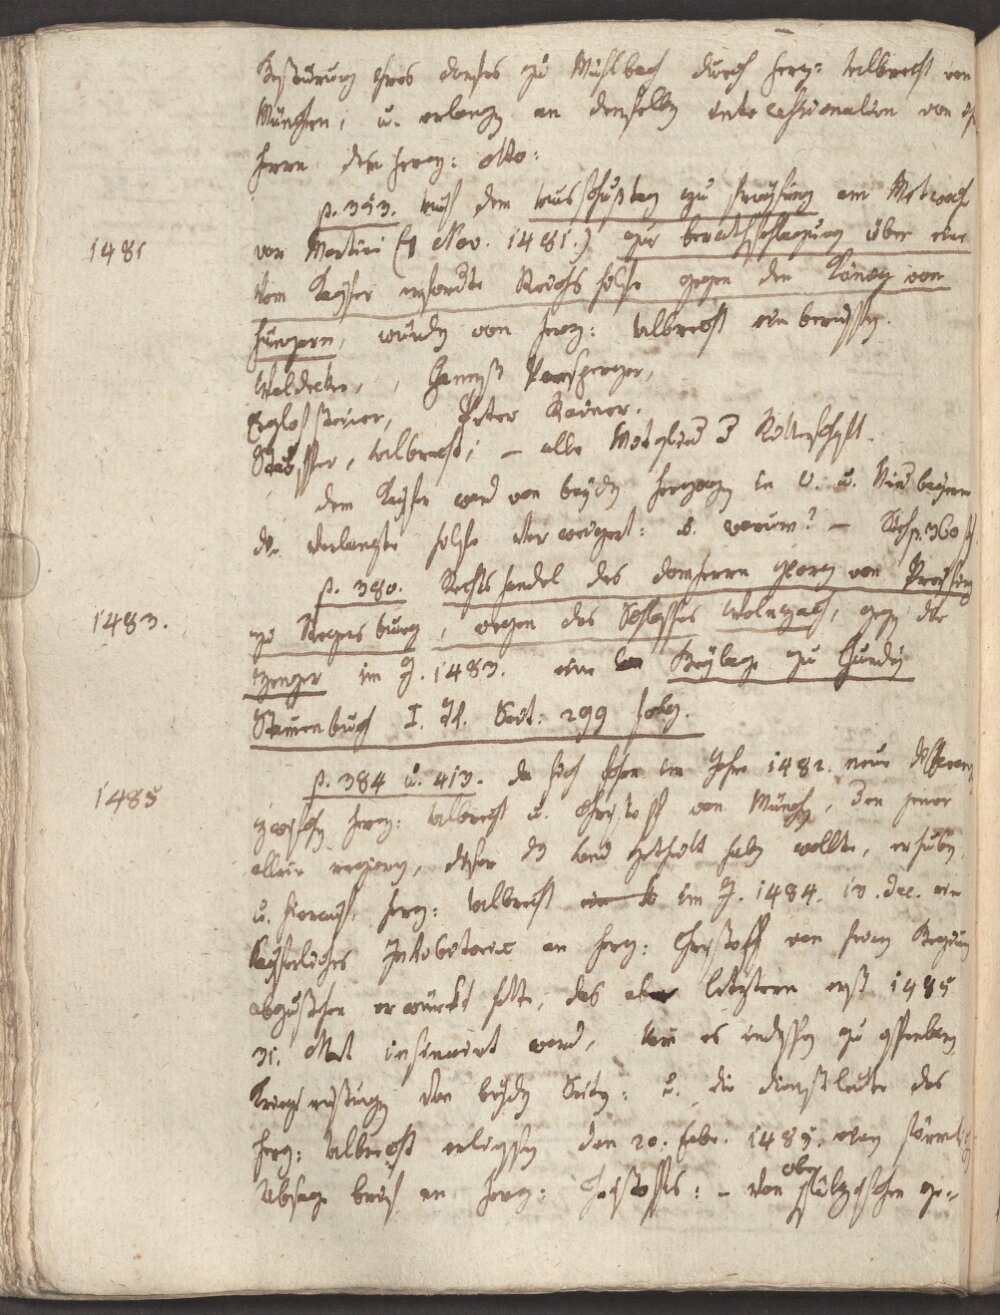 Zerstörung ihres Dorfes zu Mühlbach durch Herz: Albrecht von
München, u. erlangen an denselben intercessionalien von
Herrn dem Herz: Otto:
p. 353. Auf dem Ausschußtag zu Freysing am Mitwoch
1481
vor Martini (7 Nov. 1481.) zur berathschlagung über eine
dem Kayser erforderte Reichs hilfe gegen den König von
Hungarn, wurden von Herz: Albrecht ein berueffen.
Waldecker, Parsperger,
Egloffsteiner, Peter Rainer.
Albrecht, – alle Mitglied d Ritterschafft.
dem Kayser ward von beyden Herzogen in O. u. Nidbayern
die verlangte hilfe verweigert: u. warum? – p. 360
p. 380. Rechts handel des Domherrn Georg von Preising
1483.
zu Regensburg, wegen des Schlosses Wolnzach, gegen die
Zenger im J. 1483. eine Beylage zu Hundii
Stamenbuch I. Th. Seit: 299 folg.
1485
p. 384 u. 413. da sich schon im Jahre 1482. neue
zwischen Herz: Albrecht u. Christoff von München, den jener
allein regieren, dieser das Land getheilt haben wollte, erhuben,
u. hierauf Herz: Albrecht im J. 1484. 10. Dec. ein
kayserliches Inhibitorium an Herz: Christoff von seinen
abzustehen erwürkt hatte, das aber letzterm erst 1485
31. insinuirt ward, kam es indessen zu offenbaren
Kriegs rüstungen von beyden Seiten: u. die Dienstleute des
Herz: Albrecht erliessen den 20. Febr. 1485. einen förmlichen
Absage brief an Herz: Christoffs: – von oben ge-